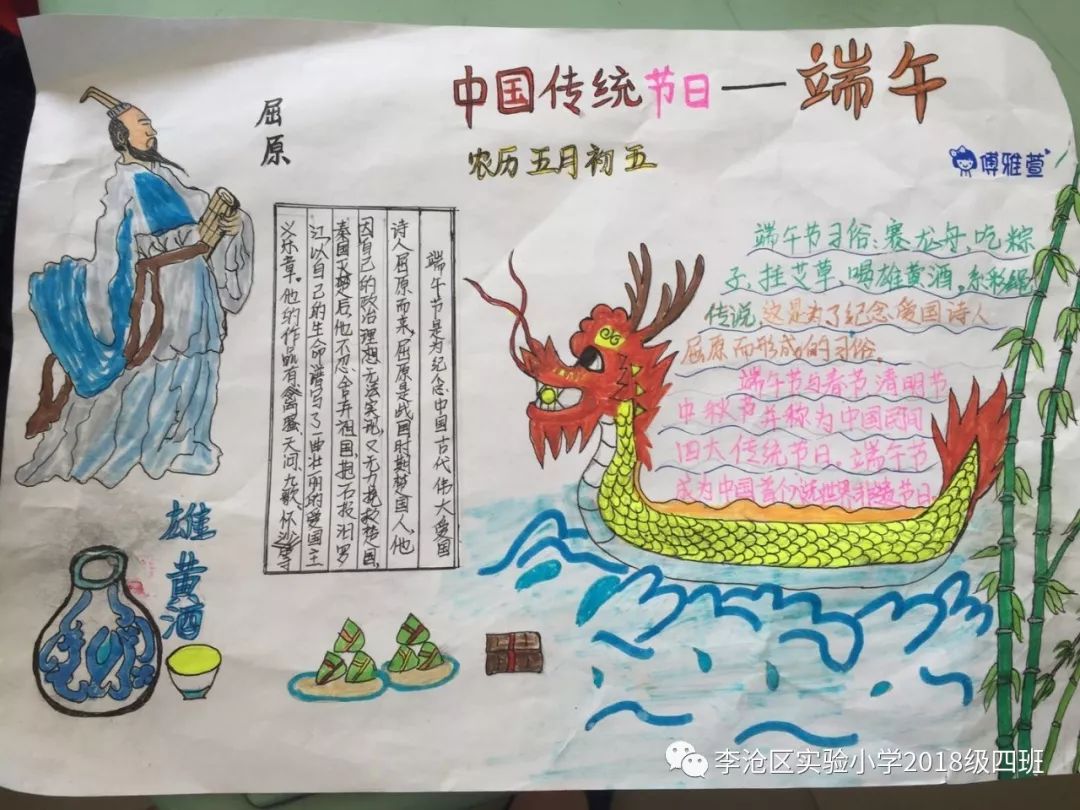 中国传统节日—端午
农历五月初五
屈原
傅雅萱
端午节是为纪念中国古代伟大爱国
诗人屈原而来,屈原是战国时期楚国人,他
因自己的政治理想无法实现,又无力挽救楚国,
秦国灭楚后,他不忍舍弃祖国,抱石投汨罗
江,以自己的生命谱写了一曲壮丽的爱国主
义乐章。他的作品有离骚、天河、九歌、怀沙等
端午节习俗:赛龙舟,吃粽
子,挂艾草,喝雄黄酒,系彩绳
传说,这是为了纪念爱国诗人
屈原而形成的习俗。
端午节与春节清明节
中秋节并称为中国民间
四大传统节日。端午节
成为中国首个入选世界非遗节日。
雄黄酒
李沧区实验小学2018级四班